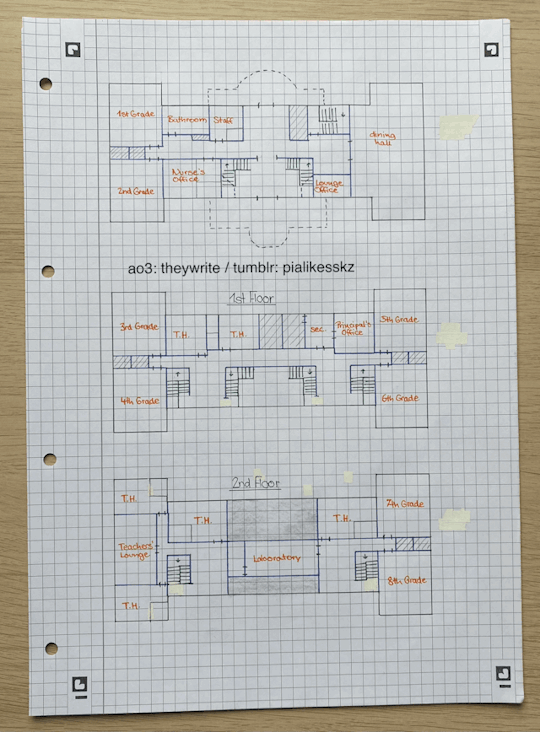 1st Grade
Bathroom
Staff
dining
hall
2nd Grade
Nurse's
Office
Lounge
Office
ao3: theywrite / tumblr: pialikesskz
1st Floor
3rd Grade
T.H.
T.H.
sec.
Principal's
Office
5th Grade
4th Grade
6th Grade
2nd Floor
T.H.
T.H.
T.H.
7th Grade
Teachers'
Lounge
Laboratory
T.H.
8th Grade